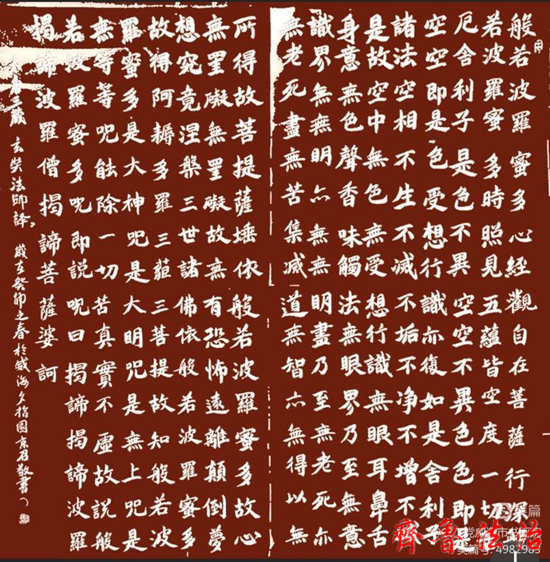 般若波羅蜜多心經觀自在菩薩行深
若波羅蜜多時照見五蘊皆空度一切
厄舍利子是色不異空空不異色色即是
空空即是色受想行識亦復如是舍利子
諸法空相不生不滅不垢不净不增不
是故空中無色無受想行識無眼耳鼻舌
身意無色聲香味觸法無眼界乃至無意
識界無無明亦無無明盡乃至無老死亦
無老死盡無苦集滅道無智亦無得以無
所得故菩提薩埵依般若波羅蜜多故心
無罣礙無罣礙故無有恐怖遠離顛倒夢
想究竟涅槃三世諸佛依般若波羅蜜多
故得阿耨多羅三藐三菩提故知般若波
羅蜜多是大神咒是大明咒是無上咒是
無等等咒能除一切苦真實不虛故説般
若波羅蜜多咒即説咒曰揭諦揭諦波羅
揭諦波羅僧揭諦菩薩婆訶
三藏玄奘法師譯歲在癸卯之春於威海夕拾園敬書
齊魯法治
4982965